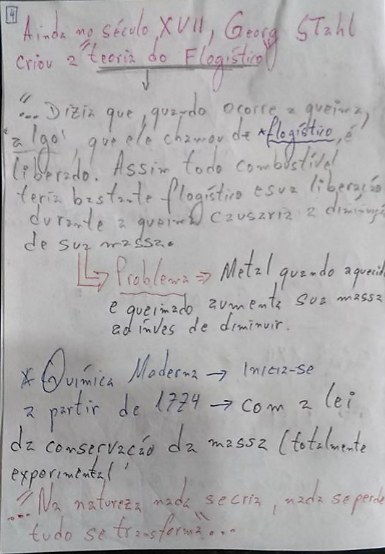 4
Ainda no século XVII, Georg Stahl
criou a "teoria do Flogístico"
"... Dizia que, quando ocorre a queima,
'algo', que ele chamou de *flogístico, é
liberado. Assim todo combustível
teria bastante flogístico e sua liberação
durante a queima causaria a diminuição
de sua massa.
Problema → Metal quando aquecido
e queimado aumenta sua massa
ao invés de diminuir.
* Química Moderna → Inicia-se
a partir de 1774 → com a lei
da conservação da massa (totalmente
experimental)
"... Na natureza nada se cria, nada se perde
tudo se transforma"...